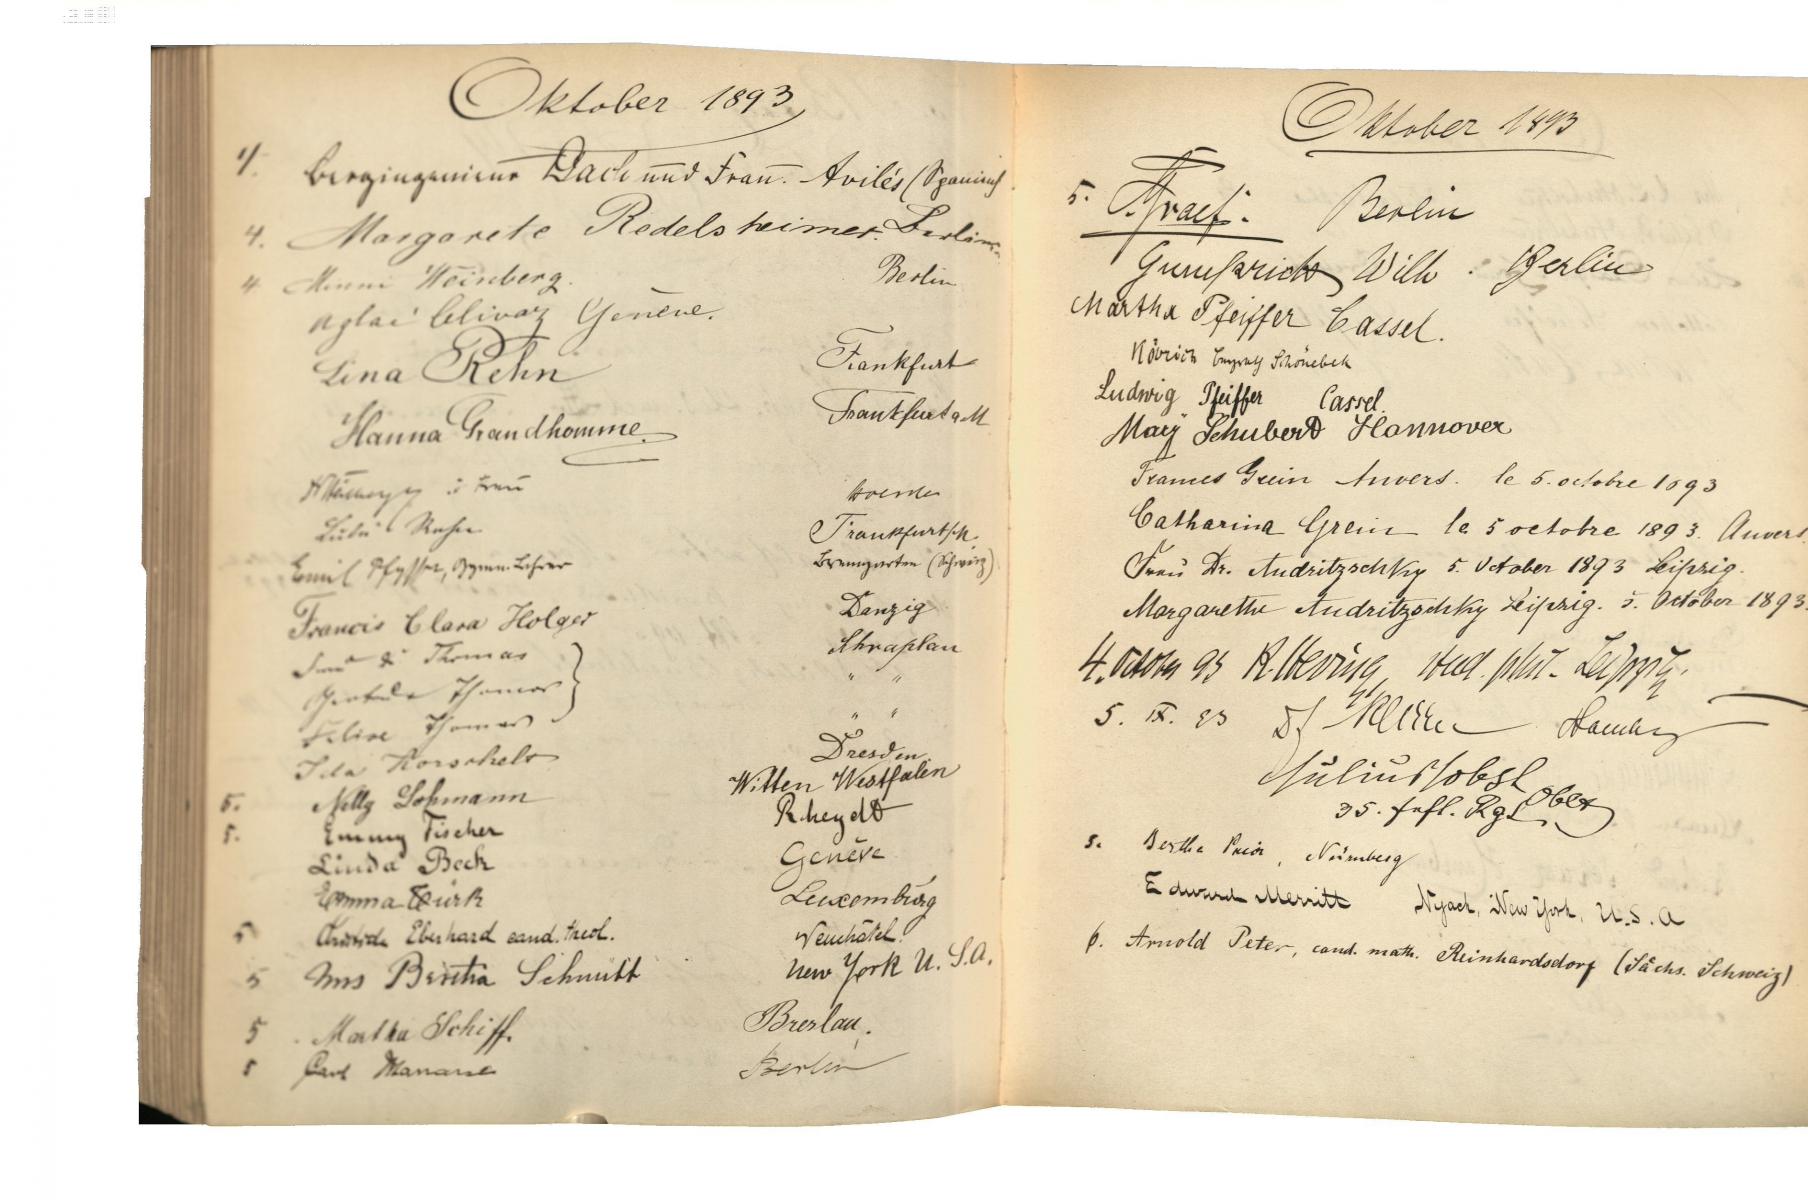 Oktober 1893
4. Bergingenieur Dach und Frau. Avilés (Spanien)
4. Margarete Redelsheimer. Berlin.
4. Minni Weinberg. Berlin
Aglaé Clivaz Genève.
Lina Rehn Frankfurt
Hanna Grandhomme. Frankfurt a M
u. Frau
Frankfurt a/M.
Emil Pfyffer, Gymn. Lehrer Bremgarten (Schweiz)
Francis Clara Holger Danzig
Frau Thomas Schraplau
Gertrude Thomas " "
Felix Thomas " "
Ida Korschelt Dresden
5. Nelly Lohmann Witten Westfalen
5. Emmy Fischer Rheydt
Linda Beck Genève
Emma Türk Luxemburg
5 Eberhard cand. theol. Neuchâtel.
5 Mrs Bertha Schmitt New York U. S. A.
5 Martha Schiff. Breslau.
5 Carl Manasse Berlin
Oktober 1893
5. Graef. Berlin
Wilh. Berlin
Martha Pfeiffer Cassel.
Schönebeck
Ludwig Pfeiffer Cassel.
Mary Schubert Hannover
Grein Anvers. le 5. octobre 1893
Catharina Grein le 5 octobre 1893. Anvers.
Frau Dr. Andritzschky 5. October 1893 Leipzig.
Margarethe Andritzschky Leipzig. 5. October 1893.
4. October 93 R. Hering, stud. phil. Leipzig.
5. IX. 93 Dr Hamburg
Julius Jobst
35. Rgt
5. Bertha Prior, Nürnberg
Edward Merritt Nyack, New York, U. S. A
6. Arnold Peter, cand. math. Reinhardsdorf (Sächs. Schweiz)